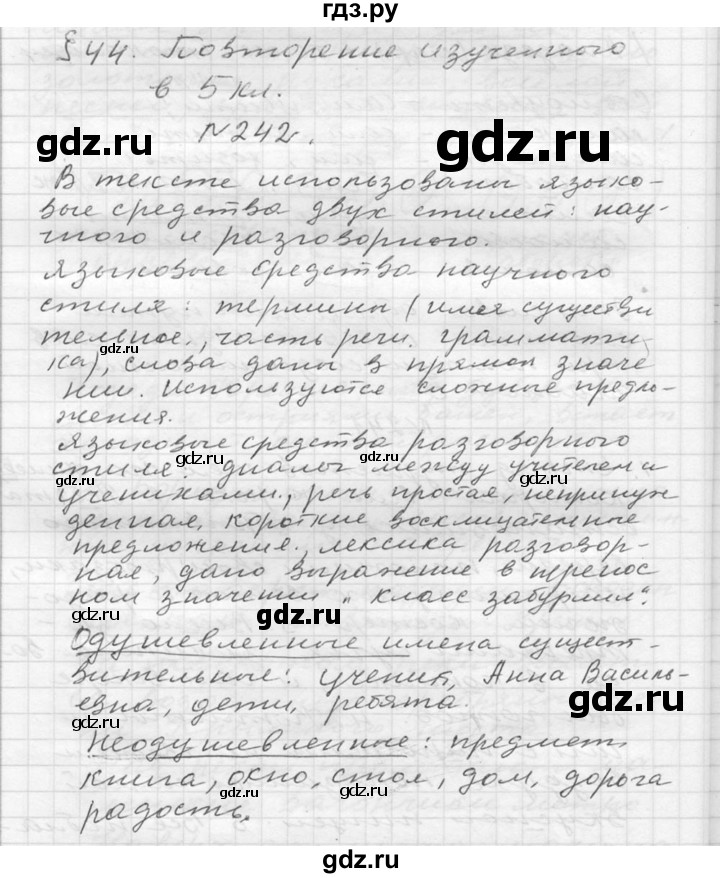 гдз.ру
§ 44. Повторение изученного
в 5 кл.
gdz.ru
gdz.ru
№ 242.
В тексте использованы языко-
вые средства двух стилей: нау-
gdz.ru
чного и разговорного.
Языковые средства научного
стиля: термины (имя существи
gdz.ru
тельное, часть речи. граммати
gdz.ru
gdz.ru
ка), слова даны в прямом значе
нии. Используются сложные предло-
gdz.ru
жения.
Языковые средства разговорного
стиля: диалог между учителем и
gdz.ru
gdz.ru
учениками, речь простая, непринуж
денная, короткие восклицательные
предложения, лексика разговор-
ная, дано выражение в перенос
ном значении „класс забурлил".
gdz.ru
Одушевленные имена сущест-
вительные: ученик, Анна Василь-
евна, дети, ребята.
gdz.ru
Неодушевленные: предмет
gdz.ru
книга, окно, стол, дом, дорога
gdz.ru
gdz.ru
радость.
gdz.ru